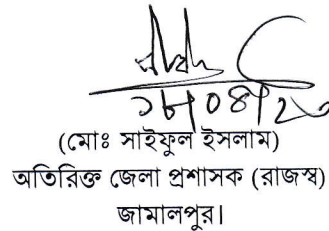 (মোঃ সাইফুল ইসলাম)
অতিরিক্ত জেলা প্রশাসক (রাজস্ব)
জামালপুর।